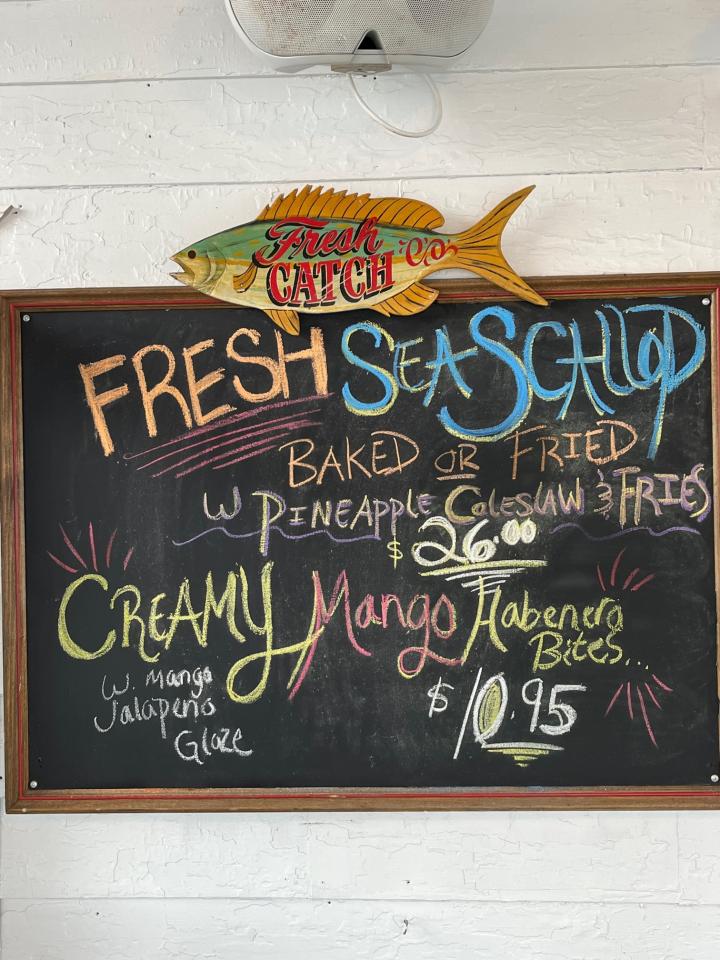 Fresh
CATCH Co.
FRESH SEA SCALLOP
BAKED OR FRIED
W PINEAPPLE COLESLAW & FRIES
$26.00
CREAMY Mango Habenero
Bites...
W. Mango
Jalapeno
Glaze
$10.95